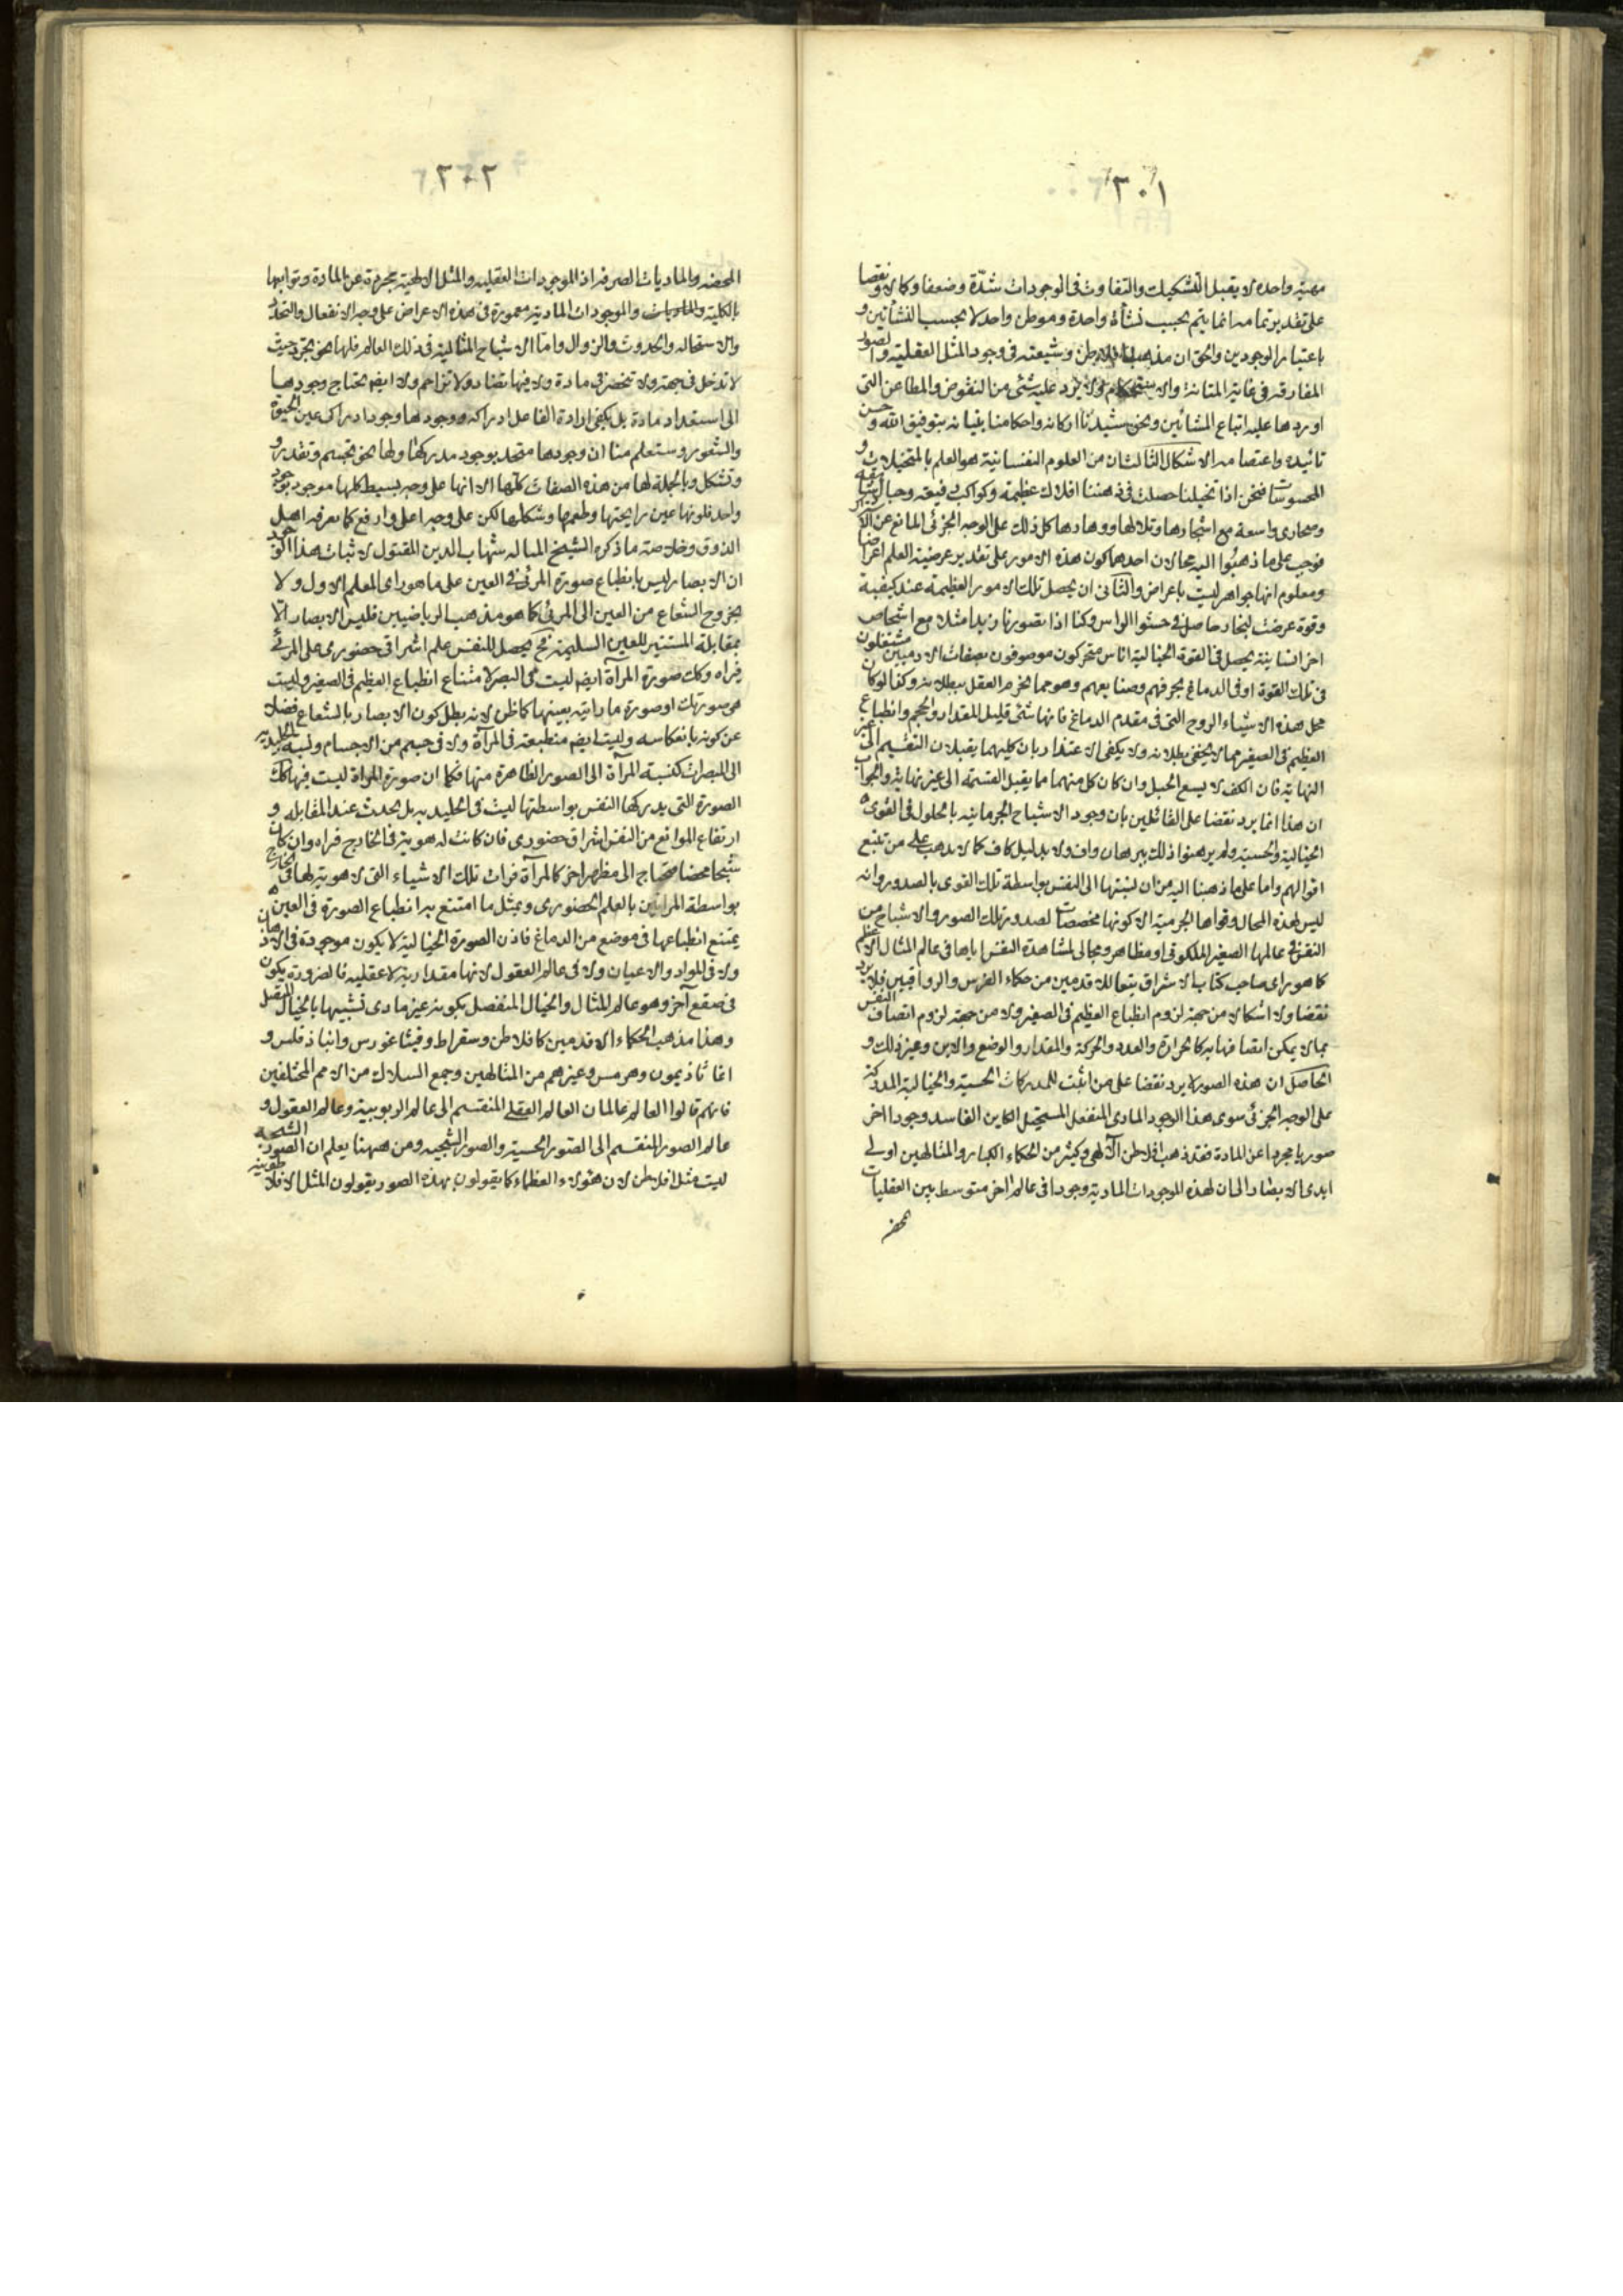 ٣٠١
مهية واحدة لا يقبل التشكيك والتفاوت فى الوجودات شدّة وضعفا وكمالا ونقصا
على تقدير تمامه انما يتم بحسب نشأة واحدة وموطن واحد لا بحسب النشأتين و
باعتبار الوجودين والحق ان مذهب افلاطن وشيعته فى وجود المثل العقلية والصور
المفارقة فى غاية المتانة والاستحكام لا يرد عليه شئ من النقوض والمطاعن التى
اوردها عليه اتباع المشائين ونحن شيدنا اركانه واحكامنا بنيانه بتوفيق الله وحسن
تائيده واعتصامه الاشكال الثالث ان من العلوم النفسانية هو العلم بالمتخيلات و
المحسوسات فنحن اذا تخيلنا حصلت فى ذهننا افلاك عظيمة وكواكب رفيعة وجبال شاهقة
وصحارى واسعة مع اشجارها وتلالها ووهادها كل ذلك على الوجه الجزئى المانع عن الاشتراك
فوجب على ما ذهبوا اليه محالان احدهما كون هذه الامور على تقدير عرضية العلم اعراضا
ومعلوم انها جواهر ليست باعراض والثانى ان يحصل تلك الامور العظيمة عند كيفية
وقوة عرضت لبخار حاصل فى حشو الراس وكذا اذا تصورنا زيدا مثلا مع اشخاص
اخر انسانية يحصل فى القوة الخيالية اناس متحركون موصوفون بصفات الادميين مشتغلون
فى تلك القوة او فى الدماغ بحرفهم وصنايعهم وهو مما يجزم العقل ببطلانه وكذا لو كان
محل هذه الاشياء الروح التى فى مقدم الدماغ فانها شئ قليل المقدار والحجم وانطباع
العظيم فى الصغير مما لا يخفى بطلانه ولا يكفى الاعتذار بان كليهما يقبلان التقسيم الى غير
النهاية فان الكف لا يسع الجبل وان كان كل منهما مما يقبل القسمة الى غير نهاية والجواب
ان هذا انما يرد نقضا على القائلين بان وجود الاشباح الجرمانيه بالحلول فى القوى
الخيالية والحسية ولم يبرهنوا ذلك ببرهان واف ولا بدليل كاف كما لا يذهب على من تتبع
اقوالهم واما على ما ذهبنا اليه من ان نسبتها الى النفس بواسطة تلك القوى بالصدور وانه
ليس لهذه المحال وقواها الجرمية الا كونها مخصصات لصدور تلك الصور والاشباح من
النفس فى عالمها الصغير الملكوتى او مظاهر ومجالى لمشاهدة النفس اياها فى عالم المثال الاعظم
كما هو راى صاحب كتاب الاشراق تبعا للاقدمين من حكماء الفرس والرواقيين فلا يرد
نقضا ولا اشكالا من جهة لزوم انطباع العظيم فى الصغير ولا من جهة لزوم اتصاف النفس
بما لا يمكن اتصافها به كالحرارة والعدد والحركة والمقدار والوضع والاين وغير ذلك و
الحاصل ان هذه الصور لا يرد نقضا على من اثبت للمدركات الحسية والخيالية المدركة
على الوجه الجزئى سوى هذا الوجود المادى المنفعل المستحيل الكاين الفاسد وجودا اخر
صوريا مجردا عن المادة فقد ذهب افلاطن الالهى وكثير من الحكماء الكبار والمتالهين اولى
ايدى الابصار الى ان لهذه الموجودات المادية وجودا فى عالم اخر متوسط بين العقليات
المحضه
٣٠٢
المحضه والماديات الصرفه اذ الموجودات العقليه والمثل الالهية مجردة عن المادة وتوابعها
بالكلية والموجودات المادية مغمورة فى هذه الاعراض على وجه الانفعال والتجدد
والاستحاله والحدوث والزوال واما الاشباح المثالية فى ذلك العالم فلها نحو تجرد حيث
لا تدخل فى جهة ولا تنحصر فى مادة ولا فيها تضاد ولا تزاحم ولا ايضا يحتاج وجودها
الى استعداد مادة بل يكفى ارادة الفاعل ادراكه ووجودها وجود ادراكى عين الحيوة
والشعور وستعلم منا ان وجودها متحد بوجود مدركها ولها نحو تجسم وتقدر و
وتشكل وبالجملة لها من هذه الصفات كلها الا انها على وجه بسيط كلها موجود بوجود
واحد فلونها عين رايحتها وطعمها وشكلها لكن على وجه اعلى وارفع كما يعرفه اهل
الذوق وخلاصة ما ذكره الشيخ المتاله شهاب الدين المقتول لاثبات هذا الوجود
ان الابصار ليس بانطباع صورة المرئى فى العين على ما هو راى المعلم الاول ولا
بخروج الشعاع من العين الى المرئى كما هو مذهب الرياضيين فليس الابصار الّا
بمقابلة المستنير للعين السليمة فح يحصل للنفس علم اشراقى حضورى على المرئى
فراه وكك صورة المرآة ايضا ليست فى البصر لامتناع انطباع العظيم فى الصغير وليست
هى صورتك او صورة ما رايته بعينها كما ظن لانه بطل كون الابصار بالشعاع فضلا
عن كونه بانعكاسه وليست ايضا منطبعة فى المرآة ولا فى جسم من الاجسام ونسبة الجليدية
الى المبصرات كنسبة المرآة الى الصور الظاهرة منها فكما ان صورة المراة ليست فيها كك
الصورة التى يدركها النفس بواسطتها ليست فى الجليديه بل يحدث عند المقابله و
ارتفاع الموانع من النفس اشراق حضورى فان كانت له هوية فى الخارج فراه وان كان
شبحا محضا محتاج الى مظهر اخر كالمرآة فرات تلك الاشياء التى لا هوية لها فى الخارج
بواسطة المرائين بالعلم الحضورى وبمثل ما امتنع به انطباع الصورة فى العين
يمتنع انطباعها فى موضع من الدماغ فاذن الصورة الخيالية لا يكون موجودة فى الاذهان
ولا فى المواد والاعيان ولا فى عالم العقول لانها مقدارية لا عقليه فالضرورة يكون
فى صقع آخر وهو عالم المثال والخيال المنفصل بكونه غير مادى تشبيها بالخيال المتصل
وهذا مذهب الحكماء الاقدمين كافلاطن وسقراط وفيثاغورس وانباذقلس و
اغاثاذيمون وهرمس وغيرهم من المتالهين وجمع السلاك من الامم المختلفين
فانهم قالوا العالم عالمان العالم العقلى المنقسم الى عالم الربوبية وعالم العقول و
عالم الصور المنقسم الى الصور الحسية والصور الشبحيه ومن ههنا يعلم ان الصور الشبحيه
ليست مثل افلاطن لان هؤلاء العظماء كما يقولون بهذه الصور يقولون المثل الافلاطونية